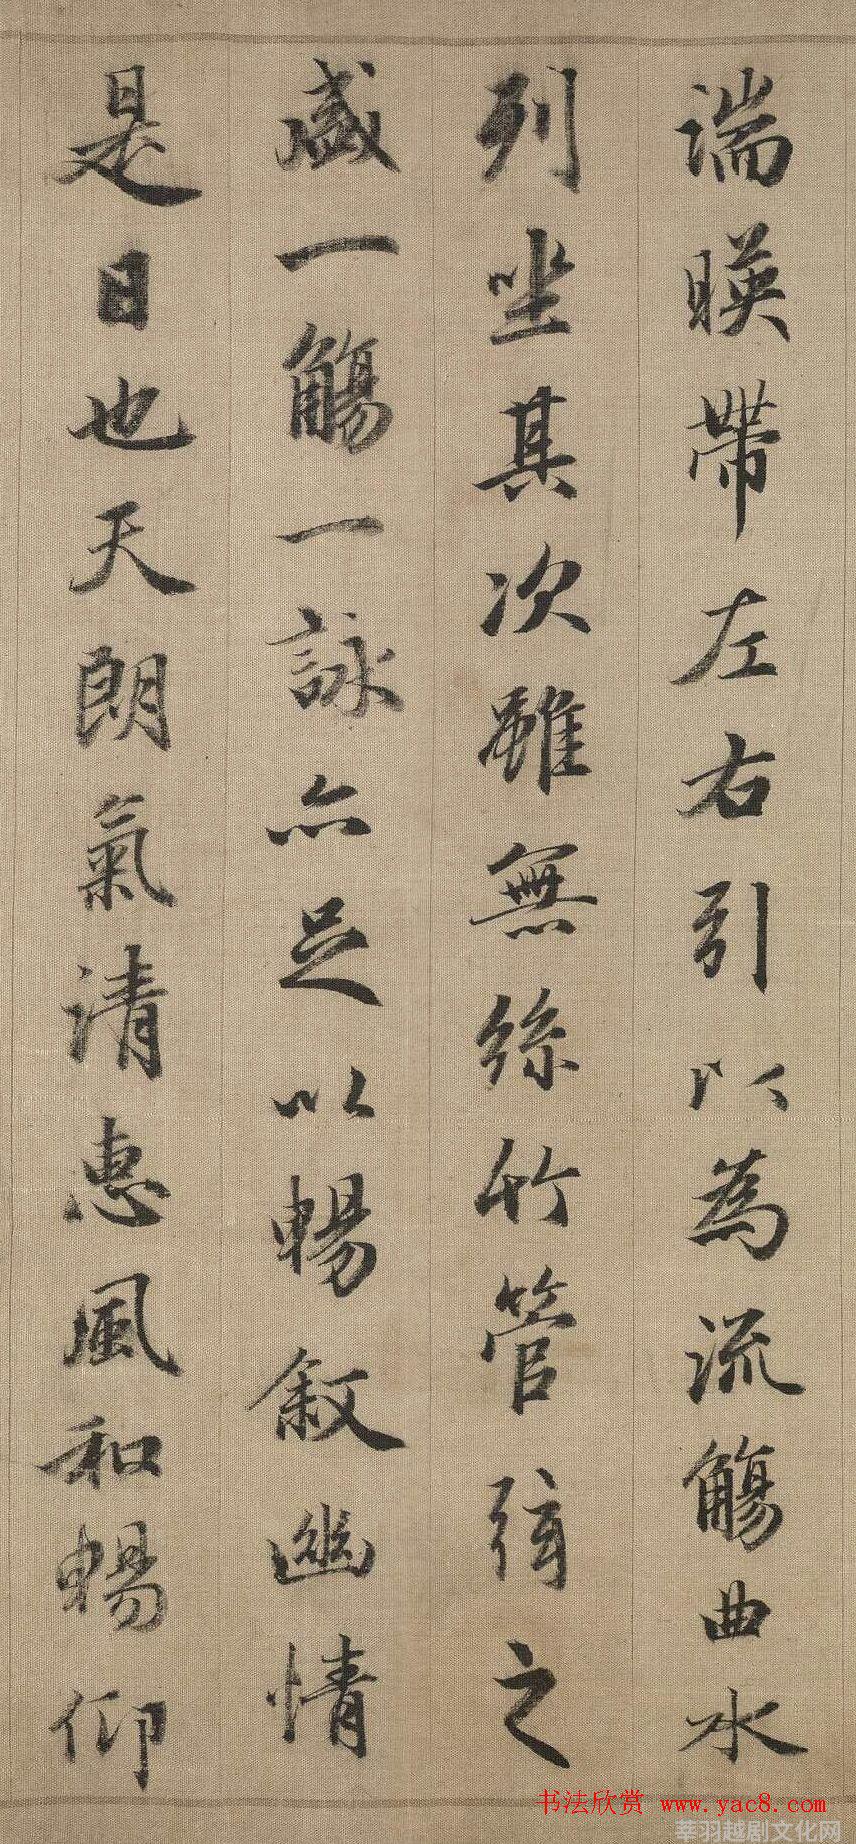 湍暎帶左右引以為流觴曲水
列坐其次雖無絲竹管弦之
盛一觴一詠亦足以暢叙幽情
是日也天朗氣清惠風和暢仰
书法欣赏 www.yac8.com
莘羽越剧文化网